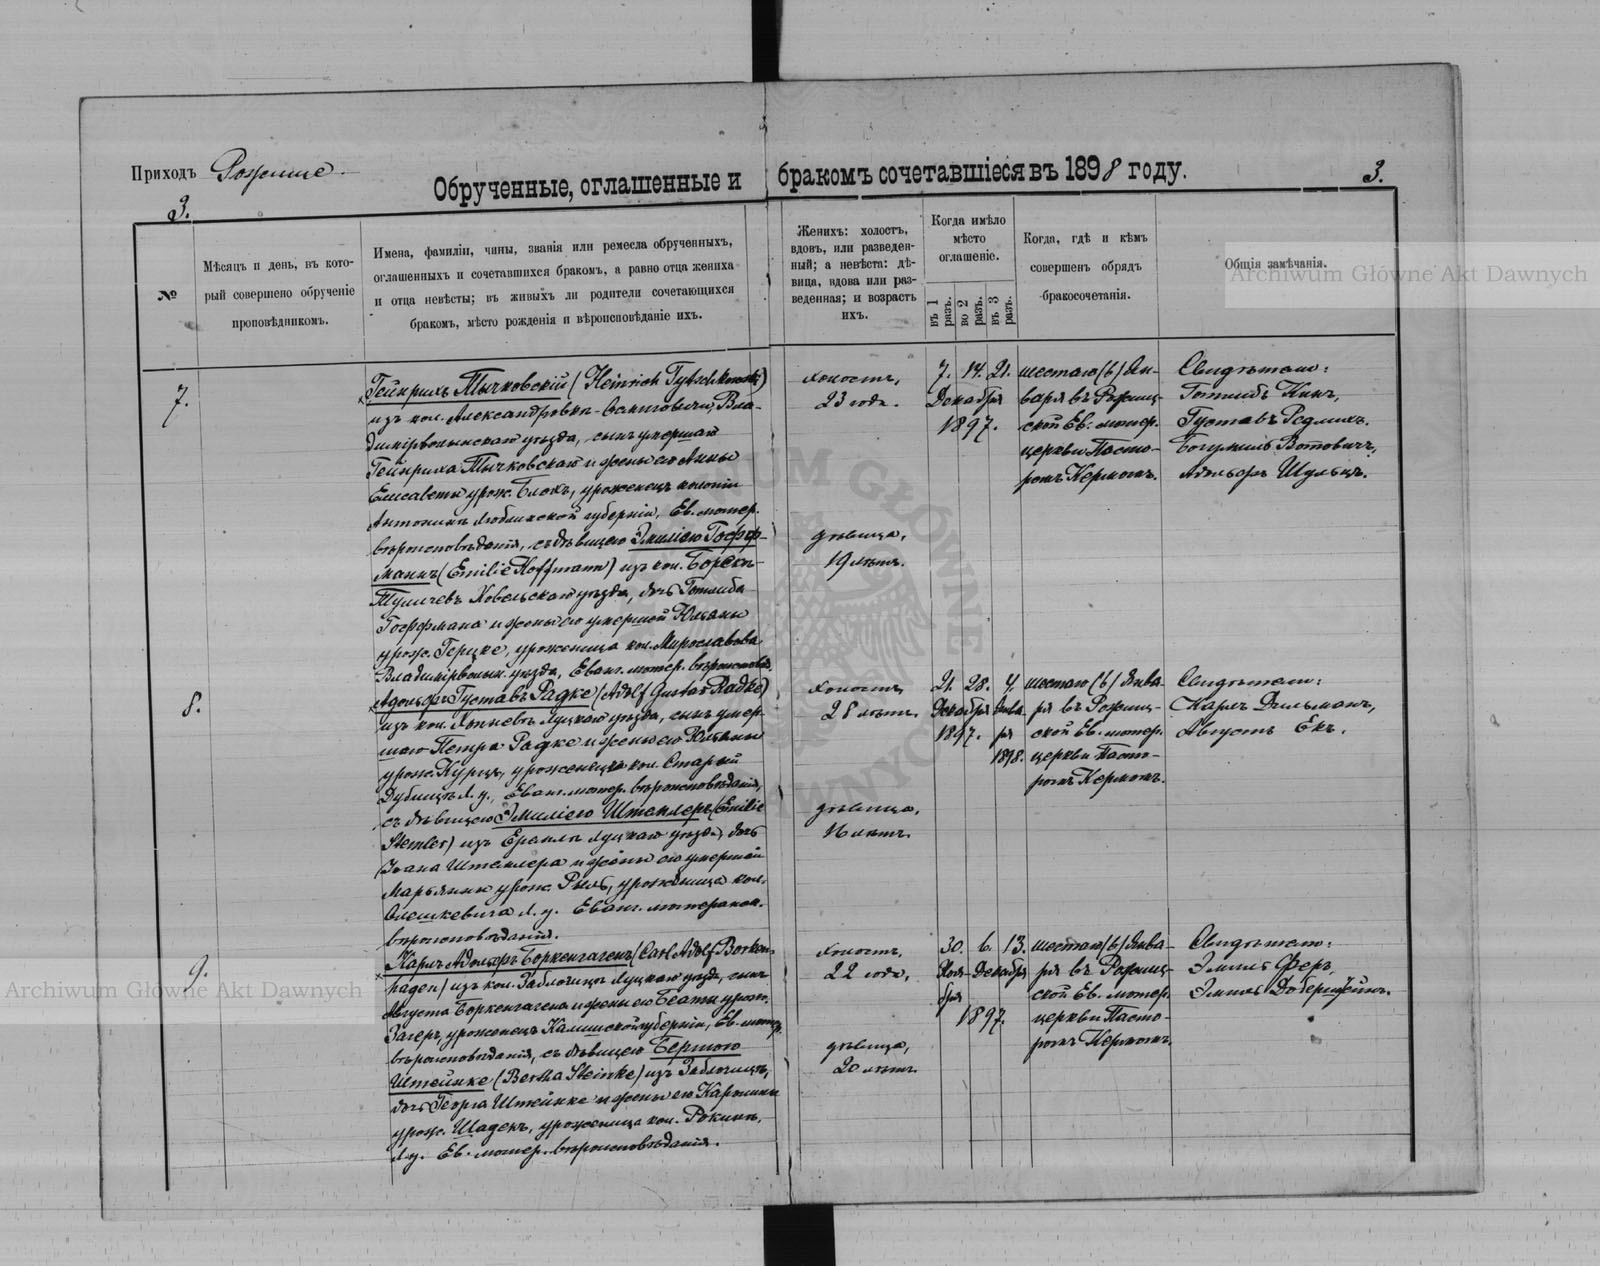 Приходъ Рожище.
Обрученные, оглашенные и бракомъ сочетавшіеся въ 1898 году.
3.
3.
№
Мѣсяцъ и день, въ кото-
рый совершено обрученіе
проповѣдникомъ.
Имена, фамиліи, чины, званія или ремесла обрученныхъ,
оглашенныхъ и сочетавшихся бракомъ, а равно отца жениха
и отца невѣсты; въ живыхъ ли родители сочетающихся
бракомъ, мѣсто рожденія и вѣроисповѣданіе ихъ.
Женихъ: холостъ,
вдовъ, или разведен-
ный; а невѣста: дѣ-
вица, вдова или раз-
веденная; и возрастъ
ихъ.
Когда имѣло
мѣсто
оглашеніе.
въ 1 разъ.
во 2 разъ.
въ 3 разъ.
Когда, гдѣ и кѣмъ
совершенъ обрядъ
бракосочетанія.
Общія замѣчанія.
7.
Гейнрихъ Тычковскій (Heinrich Tytschkowski)
изъ кол. Александровка-Осьмиговичи, Вла-
димірволынскаго уѣзда, сынъ умершаго
Гейнриха Тычковскаго и жены его Анны
Елисаветы урож. Блокъ, уроженецъ колоніи
Антонинъ Люблинской губерніи, Ев. лютер.
вѣроисповѣданія, съ дѣвицею Эмиліею Гофф-
маннъ (Emilie Hoffmann) изъ кол.
Туличевъ Ковельскаго уѣзда, дочь Готлиба
Гоффмана и жены его умершой Юліаны
урож. Герцке, уроженица кол. Мирославова
Владимірволын. уѣзда, Еванг. лютер. вѣроисповѣд.
холостъ,
23 года.
дѣвица,
19 лѣтъ.
7. 14. 21.
Декабря
1897.
шестаго (6) Ян-
варя въ Рожищ-
ской Ев. лютер.
церкви Пасто-
ромъ Кермомъ.
Свидѣтели:
Готлибъ Кинъ,
Густавъ Редлихъ.
Богумилъ Витовичъ,
Адольфъ Шульцъ.
8.
Адольфъ Густавъ Радке (Adolf Gustav Radke)
изъ кол. Луцкаго уѣзда, сынъ умер-
шаго Петра Радке и жены его Юліаны
урож. Курцъ, уроженецъ кол. Старый
Дубищъ Л. у., Еванг. лютер. вѣроисповѣданія,
съ дѣвицею Эмиліею Штемлеръ (Emilie
Stemler) изъ Луцкаго уѣзда, дочь
Іоана Штемлера и жены его умершой
Марьянны урож. Рыль, уроженица кол.
Олешкевича Л. у. Еванг. лютеранск.
вѣроисповѣданія.
холостъ,
28 лѣтъ.
дѣвица,
16 лѣтъ.
21. 28. 4.
Декабря Янва-
1897. ря
1898.
шестаго (6) Янва-
ря въ Рожищ-
ской Ев. лютер.
церкви Пасто-
ромъ Кермомъ.
Свидѣтели:
Карлъ Дильманъ,
Августъ Екъ.
9.
Карлъ Адольфъ Боркенгагенъ (Carl Adolf Borken-
hagen) изъ кол. Заблотцы Луцкаго уѣзда, сынъ
Августа Боркенгагена и жены его Беаты урож.
Загеръ, уроженецъ Калишской губерніи, Ев. лютер.
вѣроисповѣданія, съ дѣвицею Бертою
Штейнке (Bertha Steinke) изъ Заблотцы,
дочь Георга Штейнке и жены его Каролины
урож. Шаденъ, уроженица кол. Рокини,
Л. у. Ев. лютер. вѣроисповѣданія.
холостъ,
22 года,
дѣвица,
20 лѣтъ.
30. 6. 13.
Ноя- Декабря
бря
1897.
шестаго (6) Янва-
ря въ Рожищ-
ской Ев. лютер.
церкви Пасто-
ромъ Кермомъ.
Свидѣтели:
Эмиль Феръ,
Эмиль Доберштейнъ.
Archiwum Główne Akt Dawnych
Archiwum Główne Akt Dawnych